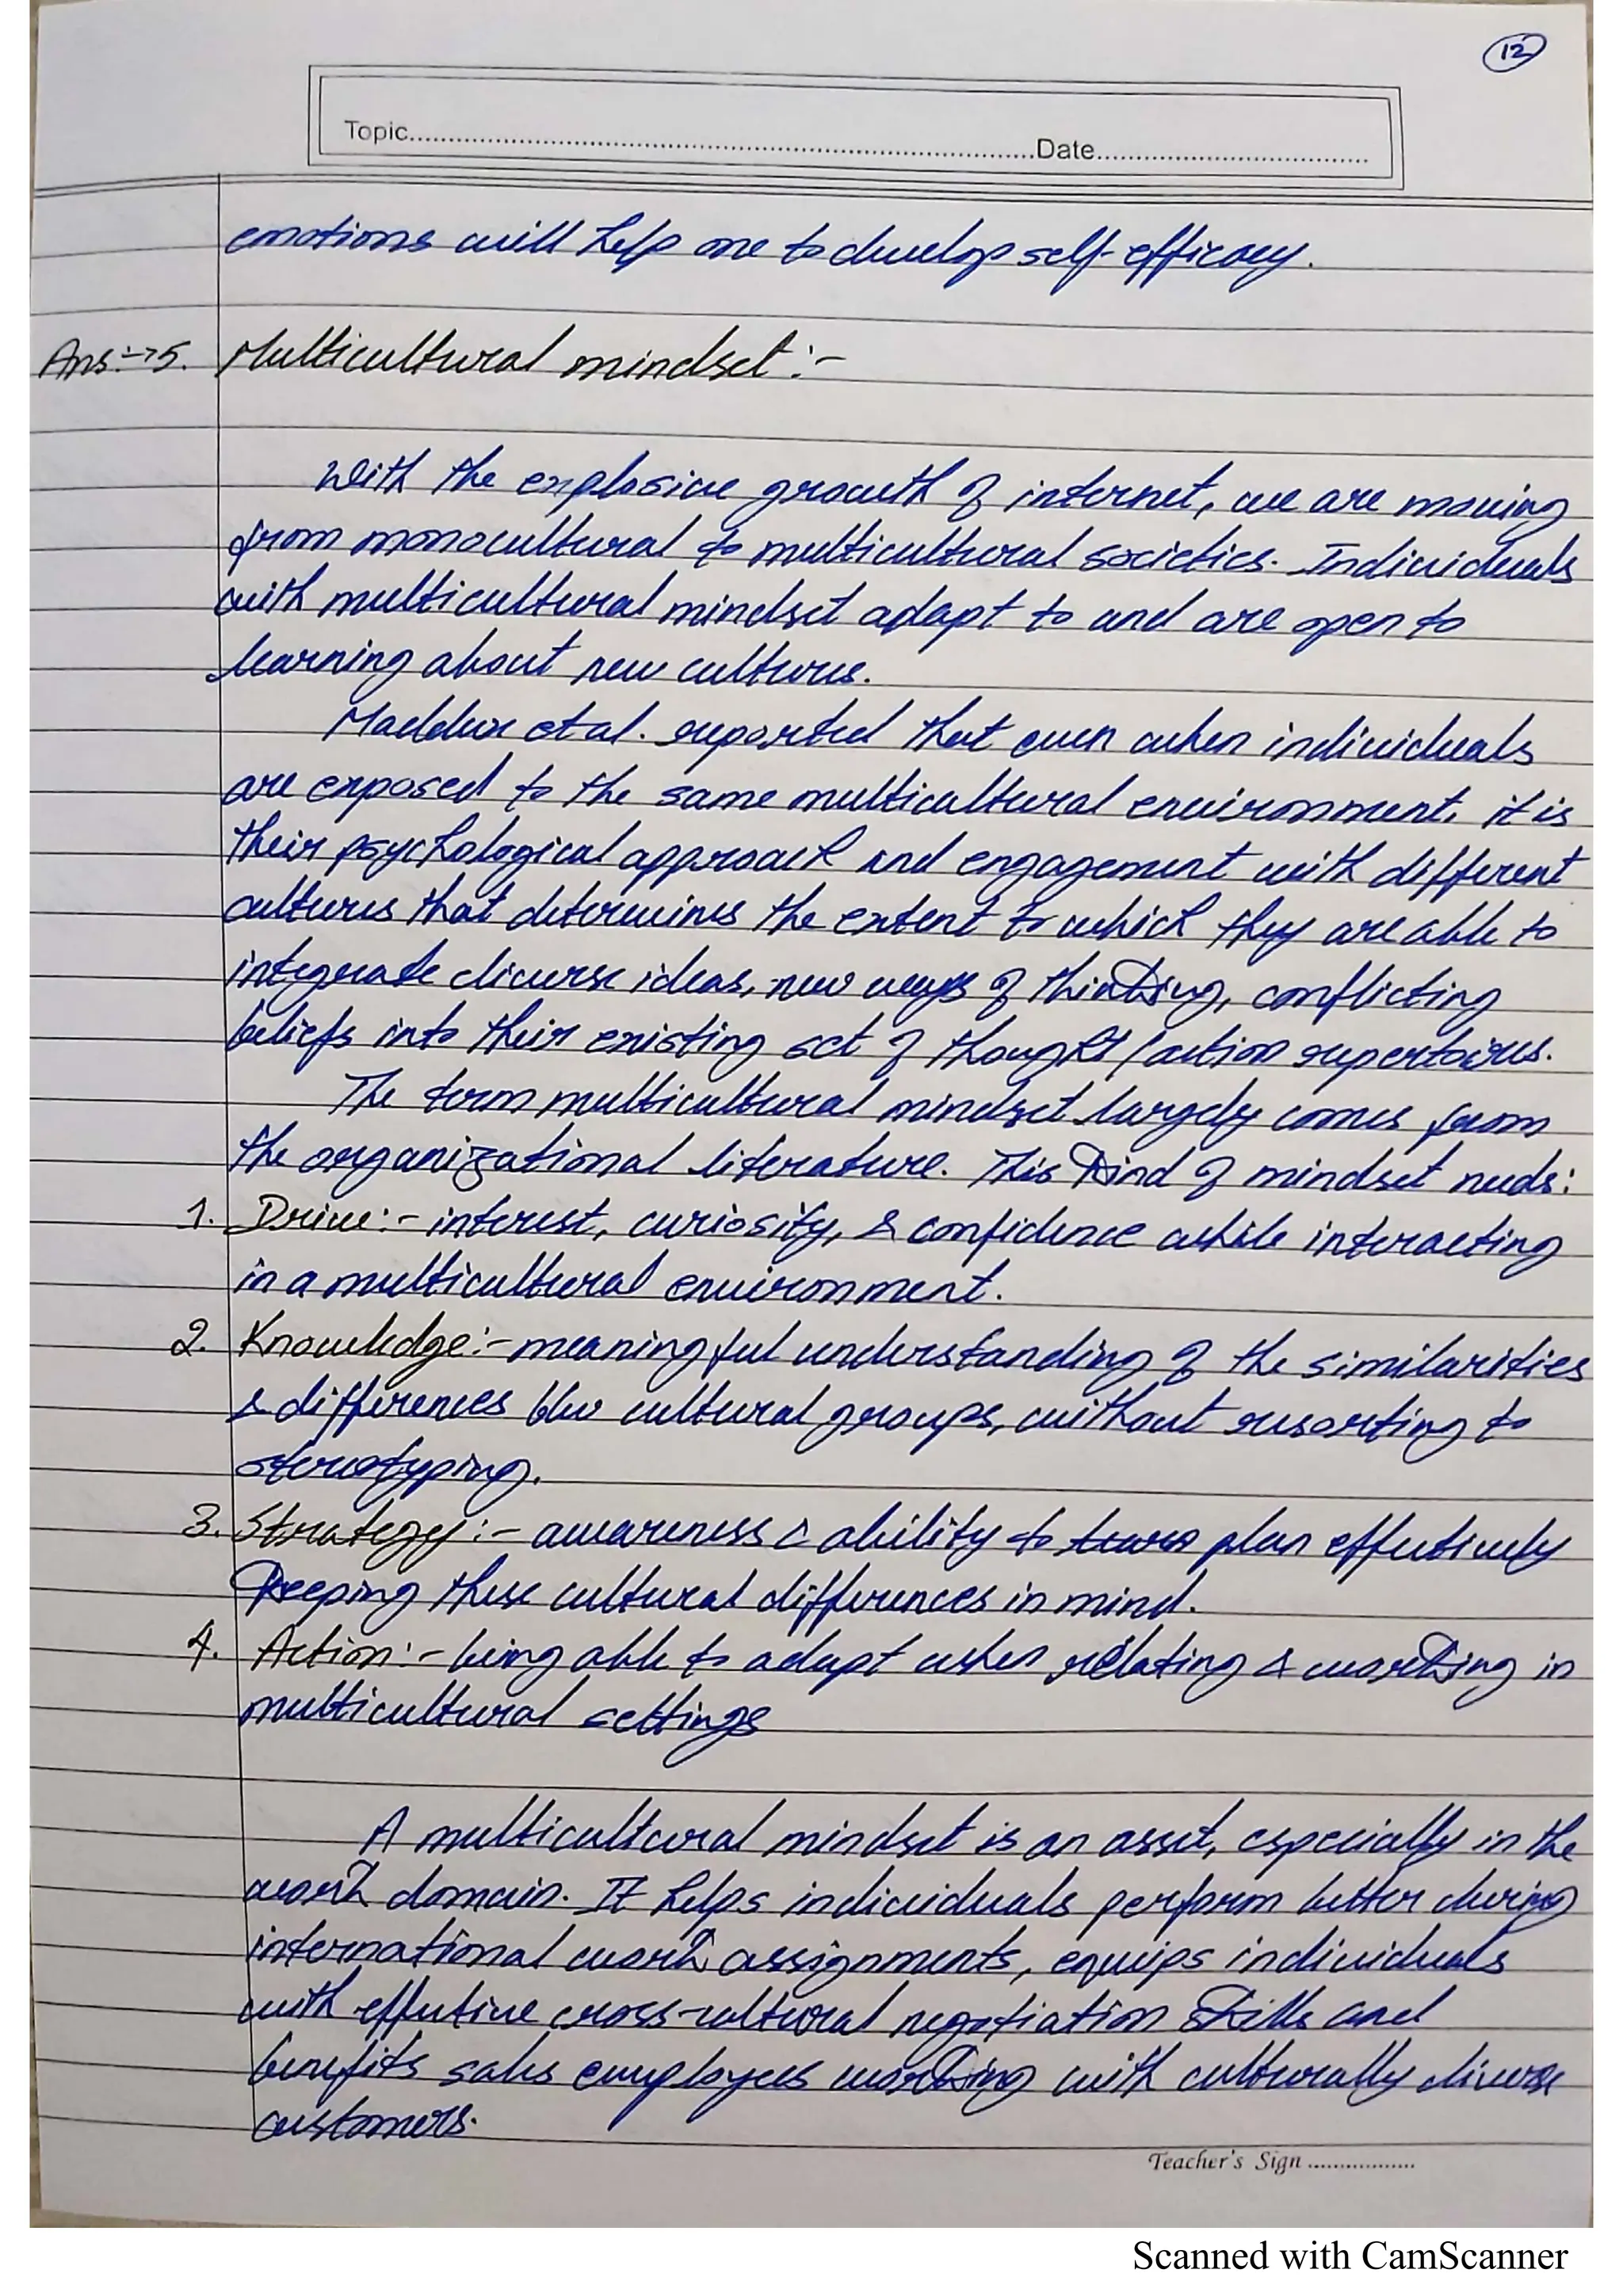 12
Topic..........Date..........
emotions will help one to develop self-efficacy.
Ans:→5. Multicultural mindset:-
With the explosive growth of internet, we are moving
from monocultural to multicultural societies. Individuals
with multicultural mindset adapt to and are open to
learning about new cultures.
Maddux et al. reported that even when individuals
are exposed to the same multicultural environment, it is
their psychological approach and engagement with different
cultures that determines the extent to which they are able to
integrate diverse ideas, new ways of thinking, conflicting
beliefs into their existing set of thought/action repertoires.
The term multicultural mindset largely comes from
the organizational literature. This kind of mindset needs:
1. Drive:- interest, curiosity, & confidence while interacting
in a multicultural environment.
2. Knowledge:- meaningful understanding of the similarities
& differences b/w cultural groups, without resorting to
stereotyping.
3. Strategy:- awareness & ability to plan effectively
keeping these cultural differences in mind.
4. Action:- being able to adapt when relating & working in
multicultural settings
A multicultural mindset is an asset, especially in the
work domain. It helps individuals perform better during
international work assignments, equips individuals
with effective cross-cultural negotiation skills and
benefits sales employees working with culturally diverse
customers.
Teacher's Sign ..........
Scanned with CamScanner